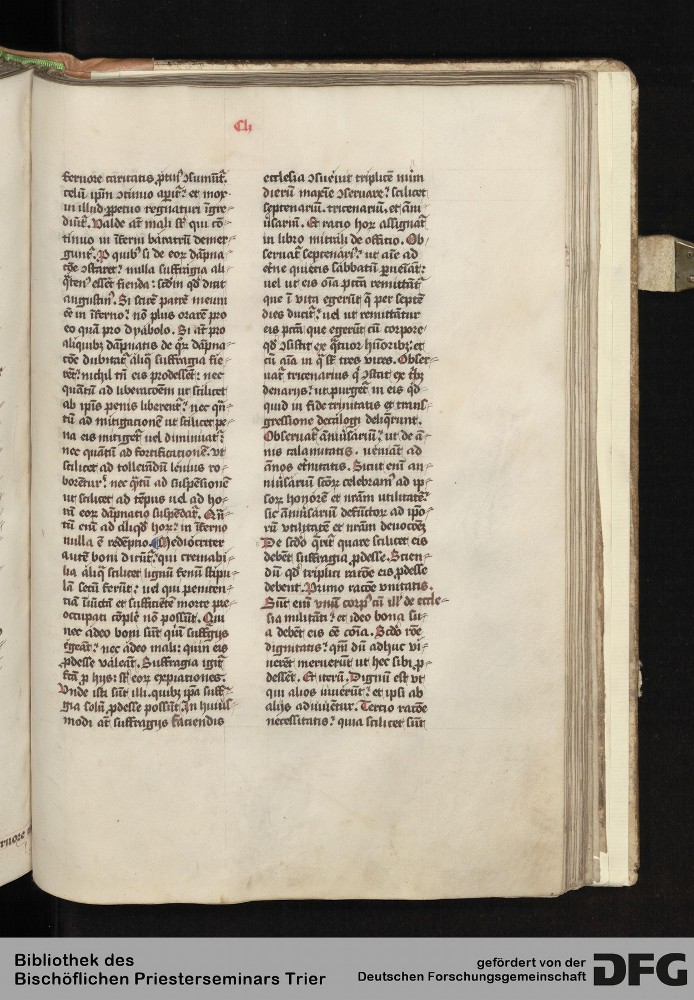 Cli
feruore caritatis ꝓtin9 ɔsumūt.
celū ipm̄ ɔtinuo aperit᷑ et mox
in illud ꝑpetuo regnaturi ingre⸗
diūt᷑. Valde at̄ mali sūt qui cō⸗
tinuo in īferni baratrū demer⸗
gunt᷑. P quib9 si de eoꝝ dāpna⸗
cōe ɔstaret᷑ nulla suffragia ali⸗
qͣten9 essēt fienda᷑ scdm̄ qd̄ dicit
augustin9. Si scirē patrē meum
eē in īferno᷑ nō plus orarē pro
eo quā pro dyabolo. Si at̄ pro
aliquibꝫ dāpnatis de qͦꝝ dāpna⸗
cōe dubitat᷑ aliqͣ suffragia fie⸗
rēt᷑ nichil tn̄ eis prodessēt᷑ nec
quātū ad liberacōem ut scilicet
ab ip̄is penis liberent᷑᷑ nec qͣn⸗
tū ad mitigationē ut scilicet pe⸗
na eis mitiget᷑ uel diminuat᷑᷑
nec quātū ad fortificationē. vt
scilicet ad tollerādū leuius ro⸗
borētur᷑ nec qͣtū ad suspēsionē
ut scilicet ad tēpus uel ad ho⸗
rā eoꝝ dāpnatio suspēdat᷑. Qn̄⸗
tū eni ad aliqd̄ hoꝝ᷑ in īferno
nulla ē redēptio. Mediocriter
autē boni dicūt᷑᷑ qui cremabi⸗
lia aliqͣ scilicet lignū fenū stipu⸗
lā secū ferūt᷑ uel qui peniten⸗
ciā iniūctā et sufficiētē morte pre⸗
occupati cōplē nō possūt. Qui
nec adeo boni sūt quī suffrgijs
egeāt᷑ nec adeo mali᷑ quin eis
ꝓdesse valeāt. Suffragia igit᷑
fc̄a ꝓ hijs᷑ sūt eoꝝ expiationes.
Vnde isti sūt illi. quibꝫ ip̄a suffͣ⸗
gia solū ꝓdesse possūt. In huius⸗
modi at̄ suffragijs faciendis
ecclesia ɔsueuit triplicē nūm
dierū maxīe ɔseruare᷑ scilicet
septenariū. tricenariū. et āni⸗
uͥsariū. Et ratio hoꝝ assignat᷑
in libro mitrali de officio. Ob⸗
seruat᷑ septenari9᷑ ut aīe ad
etne quietis sabbatū ꝑueniāt᷑
uel ut eis oīa pctā remittāt᷑
que ī vita egerūt qͣ per septē
dies ducit᷑᷑ uel ut remittātur
eis pctā que egerūt cū corpore
qd̄ ɔsistit ex qͣtuor hūoribꝫ᷑ et
cū aīa in qͣ sūt tres vires. Obser⸗
uat᷑ tricenarius qͥ ɔstat ex tͥbꝫ
denarijs᷑ ut purget᷑ in eis qd̄⸗
quid in fide trinitatis et trans⸗
gressione decalogi deliqrunt.
Obseruat᷑ āniuͥsariū᷑᷑ ut de ā⸗
nis calamitatis. veniāt ad
ānos etnitatis. Sicut eni an⸗
niuͥsariū scōꝝ celebramꝰ ad ip⸗
soꝝ honorē et nrām utilitatē᷑
sic āniuͥsariū defūctoꝝ ad ipo⸗
rū vtilitatē et nrām deuocōeꝫ
De scd̄o qͣrit᷑ quare scilicet eis
debēt suffragia ꝓdesse. Scien⸗
dū qd̄ triplici racōe eis ꝓdesse
debent. Primo racōe vnitatis.
Sunt eni vnū corp9 cū illͥ de eccle⸗
sia militāt᷑᷑ et ideo bona su⸗
a debēt eis eē cōia. Scd̄o rōe
dignitatis᷑ qm̄ dū adhuc vi⸗
uerēt meruerūt ut hec sibi ꝓ⸗
dessēt. Et iterū. Dignū est vt
qui alios iuuerūt᷑ et ip̄i ab
alijs adiuuētur. Tercio racōe
necessitatis᷑ quia scilicet sūt
Bibliothek des
Bischöflichen Priesterseminars Trier
gefördert von der
Deutschen Forschungsgemeinschaft
DFG